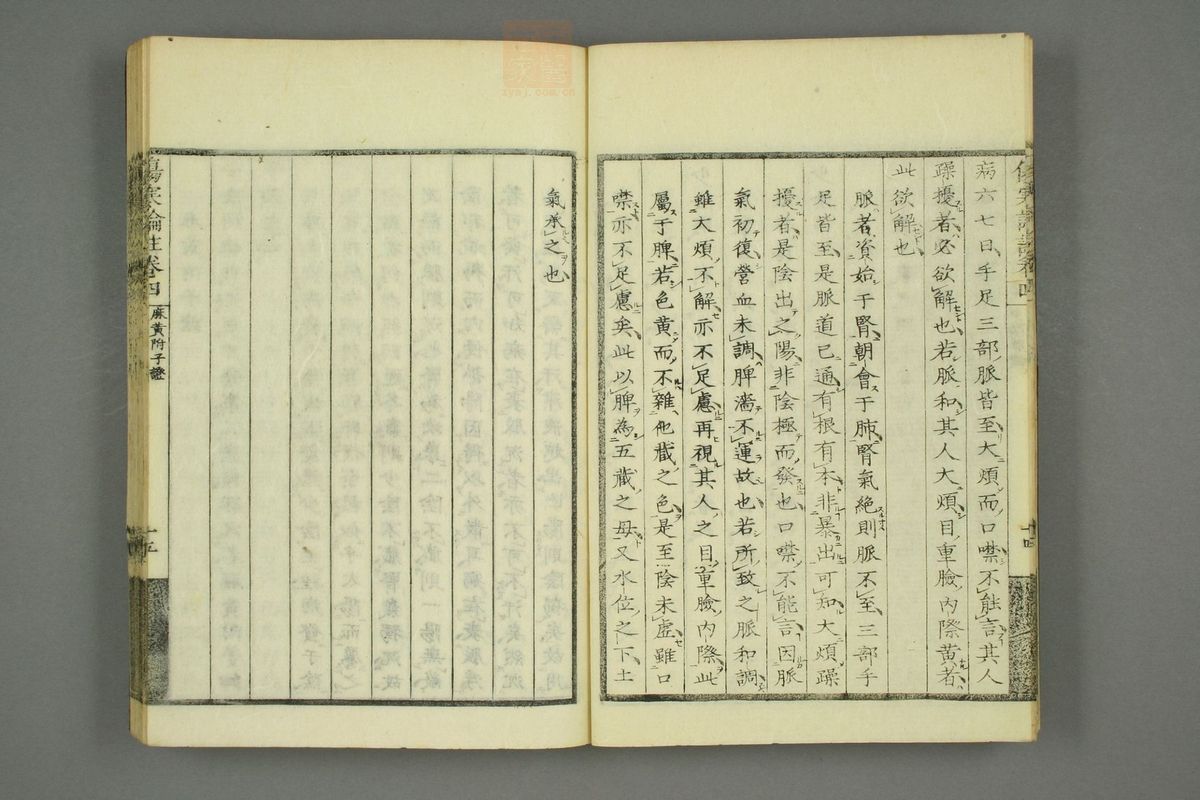 病六七日手足三部脈皆至大煩而口噤不能言其人
躁擾者必欲解也若脈和其人大煩目重臉內際黃者
此欲解也
脈者資始于腎朝會于肺腎氣絕則脈不至三部手
足皆至是脈道已通有根有本非暴出可知大煩躁
擾者是陰出之陽非陰極而發也口噤不能言因脈
氣初復營血未調脾濇不運故也若所致之脈和調
雖大煩不解亦不足慮再視其人之目重臉內際此
屬于脾若色黃而不雜他藏之色是至陰未虛雖口
噤亦不足慮矣此以脾為五藏之母又水位之下土
氣承之也
傷寒論註卷四
麻黃附子證
十五
十四
zysj.com.cn